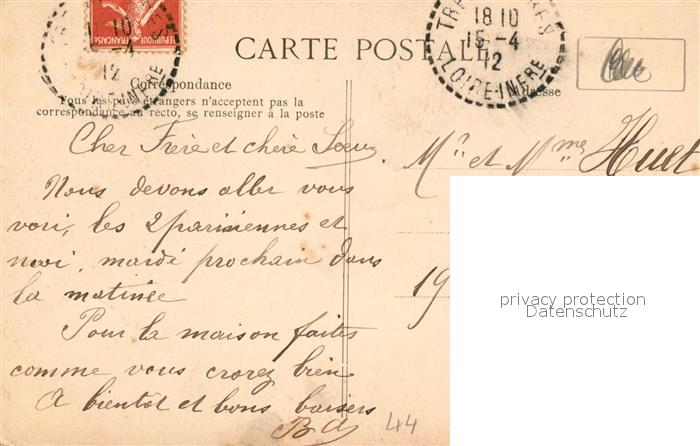 REPUBLIQUE FRANÇAISE
10
-4
12
CARTE POSTALE
18 10
15-4
12
LOIRE-INFRE
Correspondance
Adresse
Tous les pays étrangers n'acceptent pas la
correspondance au recto, se renseigner à la poste
Cher Frère et chère Soeur
Nous devons aller vous
voir, les 2 parisiennes et
moi, mardi prochain dans
la matinée
Pour la maison faites
comme vous croyez bien
A bientôt et bons baisers
Mr et Mme Huet
19
44
privacy protection
Datenschutz